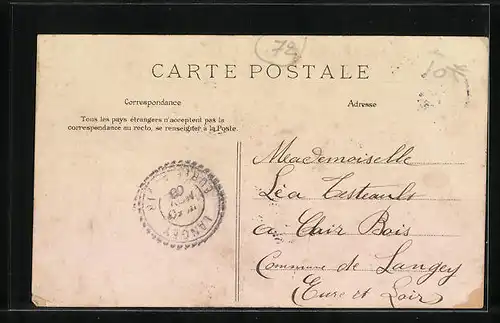 72
10x
CARTE POSTALE
Correspondance
Adresse
Tous les pays étrangers n'acceptent pas la
correspondance au recto, se renseigner à la Poste.
Mademoiselle
Léa Testeault
a Clair Bois
Commune de Langey
(Eure et Loir)
LANGEY
EURE